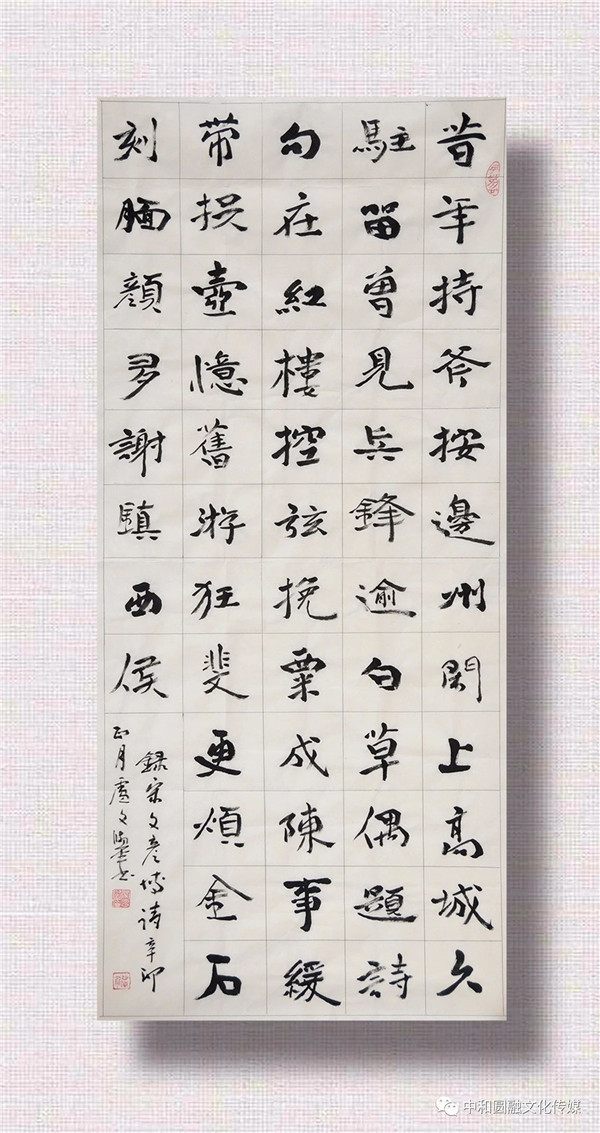 昔年持斧按邊州閑上高城久
駐留曾見兵鋒逾白草偶題詩
句在紅樓控弦挽粟成陳事緩
帶投壺憶舊游狂斐更煩金石
刻腼顏多謝鎮西侯
録宋文彥博詩辛卯
正月盧文書
中和圆融文化传媒